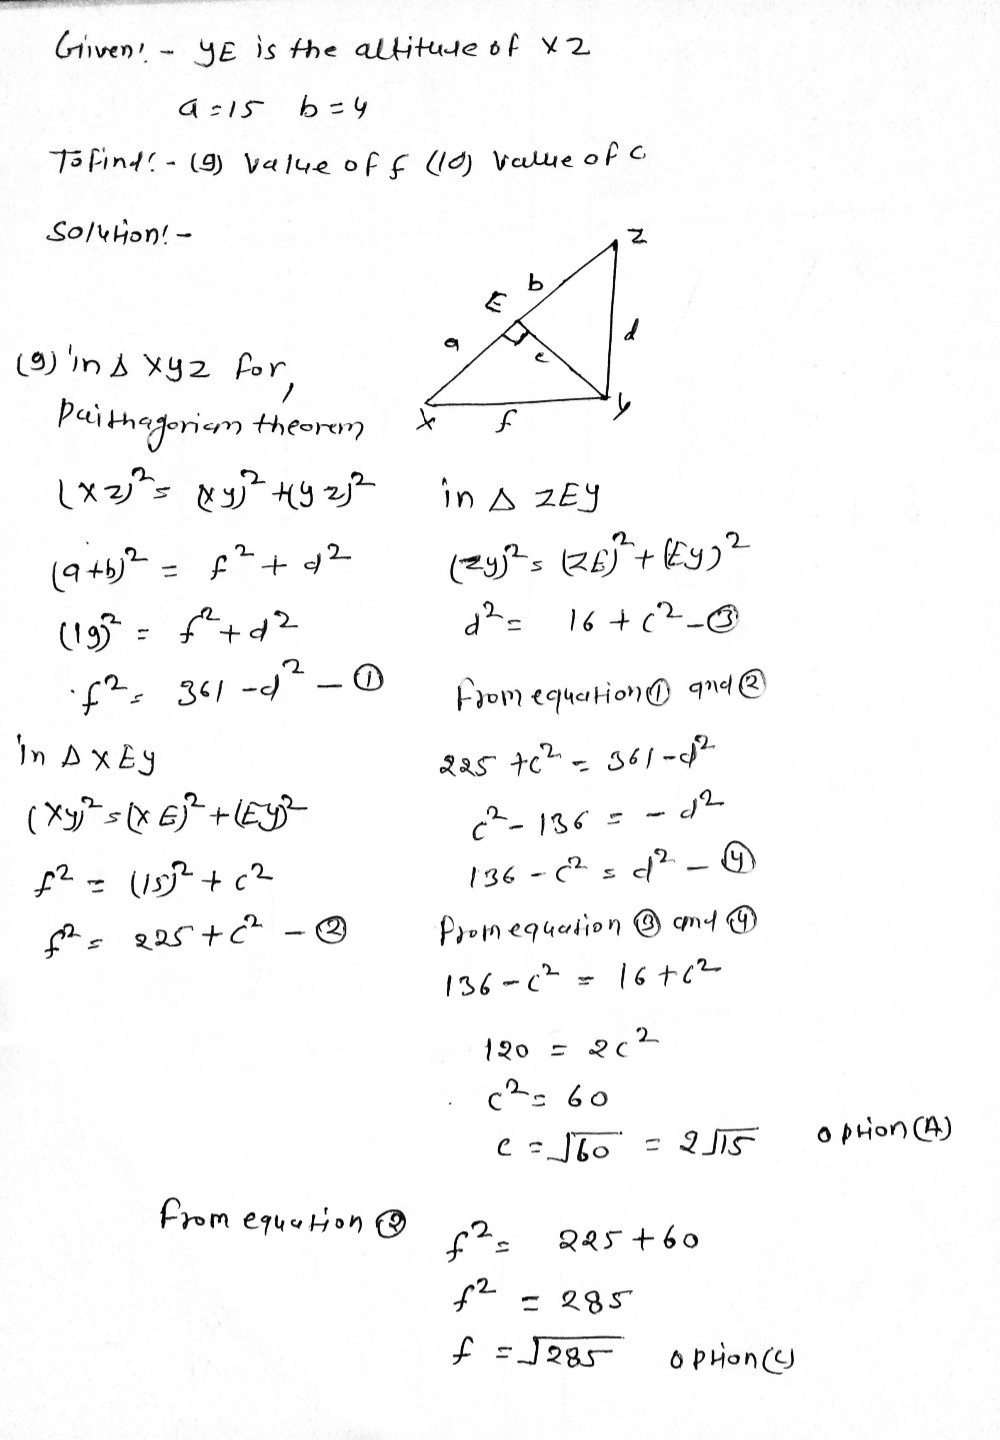 Given! - YE is the altitude of XZ
a = 15 b = 4
To find! - (9) Value of f (10) Value of c
Solution! -
Z
b
E
a
c
d
X
f
Y
(9) in Δ XYZ for,
Paithagoriam theorem
(XZ)² = (XY)² + (YZ)²
(a+b)² = f² + d²
(19)² = f² + d²
f² = 361 - d² - ①
in Δ XEY
(XY)² = (XE)² + (EY)²
f² = (15)² + c²
f² = 225 + c² - ②
in Δ ZEY
(ZY)² = (ZE)² + (EY)²
d² = 16 + c² - ③
From equation ① and ②
225 + c² = 361 - d²
c² - 136 = - d²
136 - c² = d² - ④
From equation ③ and ④
136 - c² = 16 + c²
120 = 2c²
c² = 60
c = √60 = 2√15 option (A)
From equation ②
f² = 225 + 60
f² = 285
f = √285 option (C)